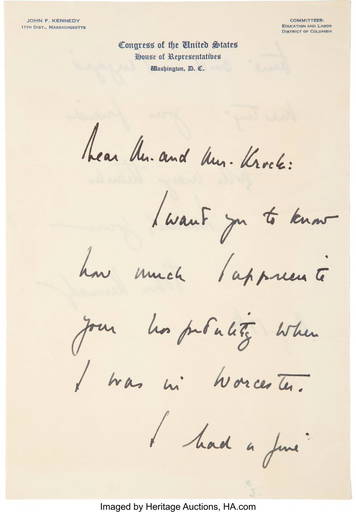 JOHN F. KENNEDY
11TH DIST., MASSACHUSETTS
COMMITTEES:
EDUCATION AND LABOR
DISTRICT OF COLUMBIA
Congress of the United States
House of Representatives
Washington, D. C.
Dear Mr. and Mrs. Krock:
I want you to know
how much I appreciate
your hospitality when
I was in Worcester.
I had a fine
Imaged by Heritage Auctions, HA.com